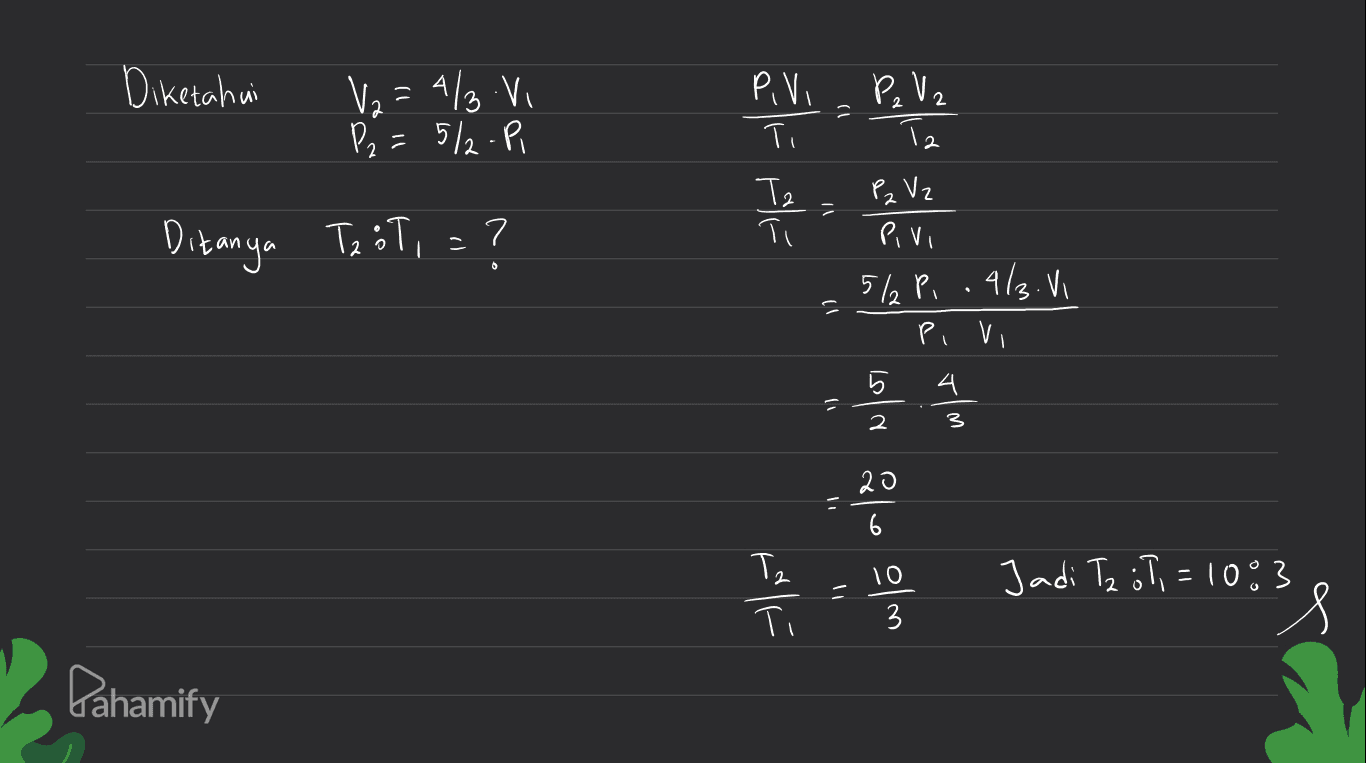 Diketahui V₂ = 4/3 · V₁
P₂ = 5/2 · P₁
Ditanya T₂ : T₁ = ?
P₁V₁/T₁ = P₂V₂/T₂
T₂/T₁ = P₂V₂/P₁V₁
= 5/2 P₁ · 4/3 · V₁ / P₁ V₁
= 5/2 · 4/3
= 20/6
T₂/T₁ = 10/3 Jadi T₂ : T₁ = 10 : 3
Pahamify